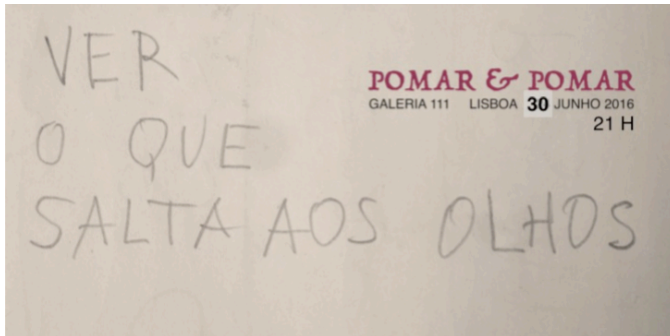 VER
O QUE
SALTA AOS OLHOS
POMAR & POMAR
GALERIA 111 LISBOA 30 JUNHO 2016
21 H